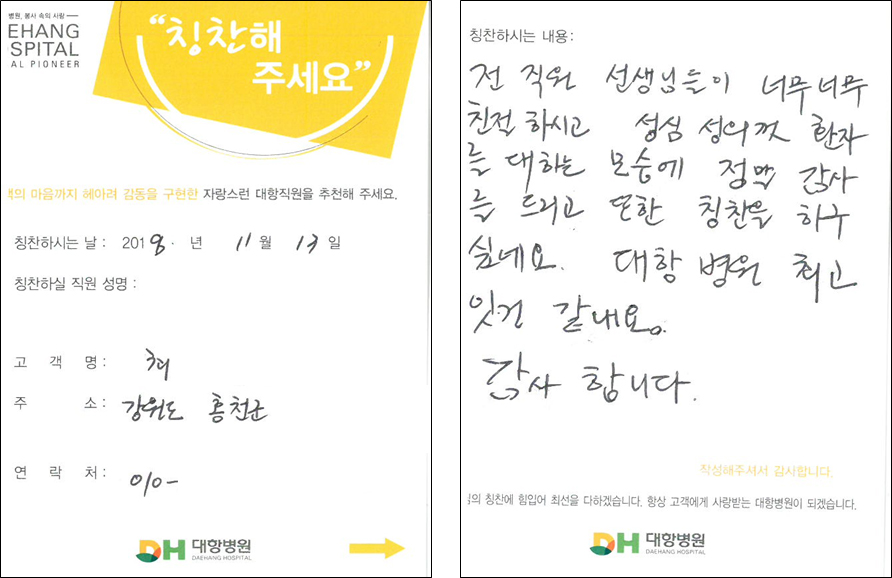 병원, 봉사 속의 사람
EHANG
SPITAL
AL PIONEER
“칭찬해
주세요”
객의 마음까지 헤아려 감동을 구현한 자랑스런 대항직원을 추천해 주세요.
칭찬하시는 날 : 2018. 년 11월 13일
칭찬하실 직원 성명 :
고 객 명 : 최
주 소 : 강원도 홍천군
연 락 처 : 010-
DH 대항병원
DAEHANG HOSPITAL
칭찬하시는 내용:
전 직원 선생님들이 너무너무
친절 하시고 성심 성의껏 환자
를 대하는 모습에 정말 감사
를 드리고 또한 칭찬을 하구
싶네요. 대항 병원 최고
잇건 같내요.
감사 합니다.
작성해주셔서 감사합니다.
님의 칭찬에 힘입어 최선을 다하겠습니다. 항상 고객에게 사랑받는 대항병원이 되겠습니다.
DH 대항병원
DAEHANG HOSPITAL